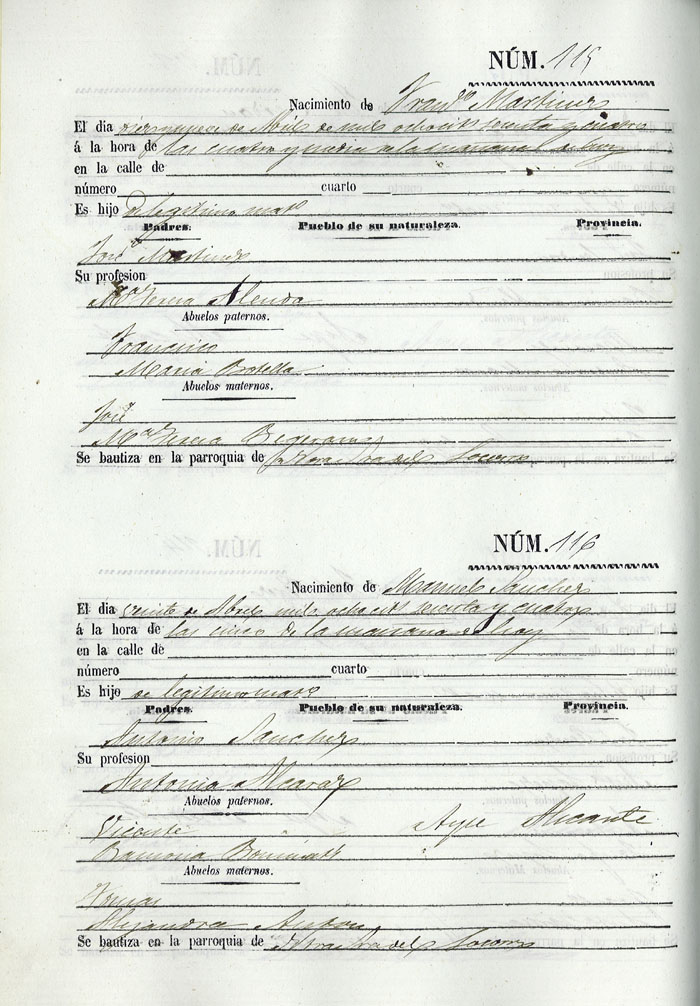 NÚM. 115
Nacimiento de Fran.co Martinez
El dia de Abril de mil ochocientos y cuatro
á la hora de las cuatro y media de la mañana de hoy
en la calle de
número cuarto
Es hijo de legitimo mat.o
Padres. Pueblo de su naturaleza. Provincia.
José Martinez
Su profesion
M.a Teresa Alenda
Abuelos paternos.
Francisco
Maria Botella
Abuelos maternos.
José
M.a Teresa
Se bautiza en la parroquia de Ntra Sra del Socorro
NÚM. 116
Nacimiento de Manuel Sanchez
El dia veinte de Abril mil ochocientos sesenta y cuatro
á la hora de las cinco de la mañana de hoy
en la calle de
número cuarto
Es hijo de legitimo mat.o
Padres. Pueblo de su naturaleza. Provincia.
Antonio Sanchez
Su profesion
Antonia Alcaraz
Abuelos paternos.
Vicente Alicante
Ramona
Abuelos maternos.
Tomas
Alejandra Anton
Se bautiza en la parroquia de Ntra Sra del Socorro